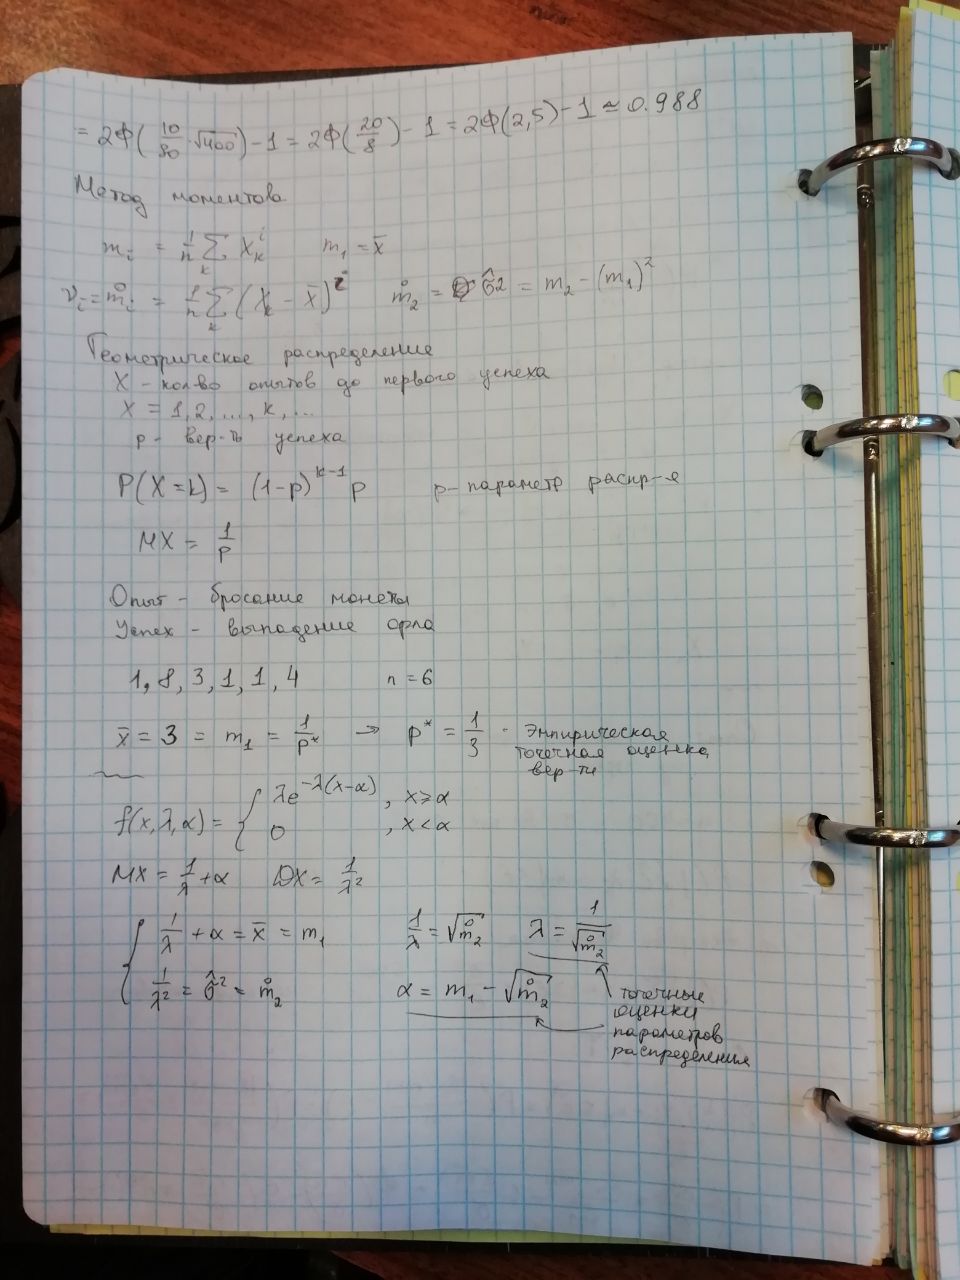 = 2Ф(10/80 · √400) − 1 = 2Ф(20/8) − 1 = 2Ф(2,5) − 1 ≈ 0.988
Метод моментов
mᵢ = 1/n ∑ₖ Xₖⁱ m₁ = x̄
νᵢ = m̊ᵢ = 1/n ∑ₖ (Xₖ − X̄)ⁱ m̊₂ = σ̂² = m₂ − (m₁)²
Геометрическое распределение
X – кол-во опытов до первого успеха
X = 1, 2, ..., k, ...
p – вер-ть успеха
P(X = k) = (1−p)ᵏ⁻¹ p p – параметр распр-я
MX = 1/p
Опыт – бросание монеты
Успех – выпадение орла
1, 8, 3, 1, 1, 4 n = 6
x̄ = 3 = m₁ = 1/p* → p* = 1/3 - Эмпирическая
точечная оценка
вер-ти
f(x, λ, α) = { λe^(−λ(x−α)), x ⩾ α
0, x < α
MX = 1/λ + α DX = 1/λ²
{ 1/λ + α = x̄ = m₁ 1/λ = √m̊₂ λ = 1/√m̊₂
1/λ² = σ̂² = m̊₂ α = m₁ − √m̊₂
точечные
оценки
параметров
распределения